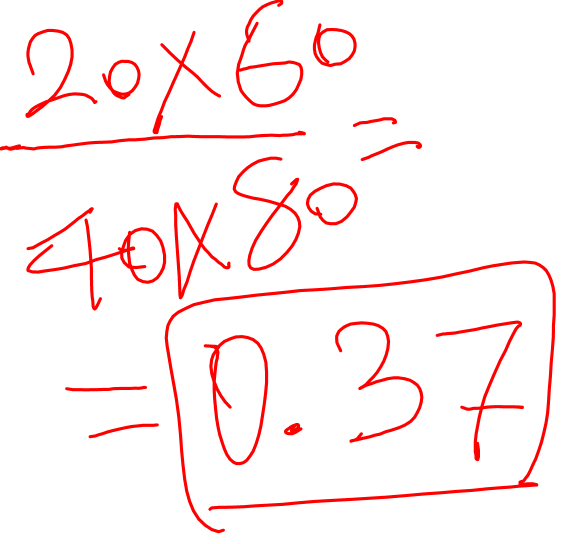 20x60
=
40x80
= 0.37